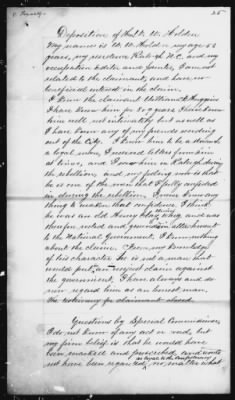 25
Deposition of Hon W. W. Holden
My name is W. W. Holden my age 53
years, my residence Raleigh N.C. and my
occupation Editor and printer, I am not
related to the claimant, and have no
beneficial interest in the claim.
I know the claimant William J. Huggins
I have known him for 20 years. I have known
him well not intimately but as well as
I have known any of my friends residing
out of the City. I knew him to be a staunch
loyal man, I received letters from him
at times, and I saw him in Raleigh during
the rebellion, and my feeling now is that
he is one of the men that I fully confided
in during the rebellion. I never knew any
thing to weaken that confidence. I think
he was an old Henry Clay Whig and was
therefore noted and general in attachment
to the National Government. I know nothing
about the claim. From my knowledge
of his character he is not a man that
would put an unjust claim against
the government. I have always and do
now regard him as an honest man.
The testimony for claimant closed
Questions by Special Commissioner
I do not know of any act or vote, but
my firm belief is that he would have
been marked and proscribed and would
not have been regarded as loyal to the Confederacy no matter what